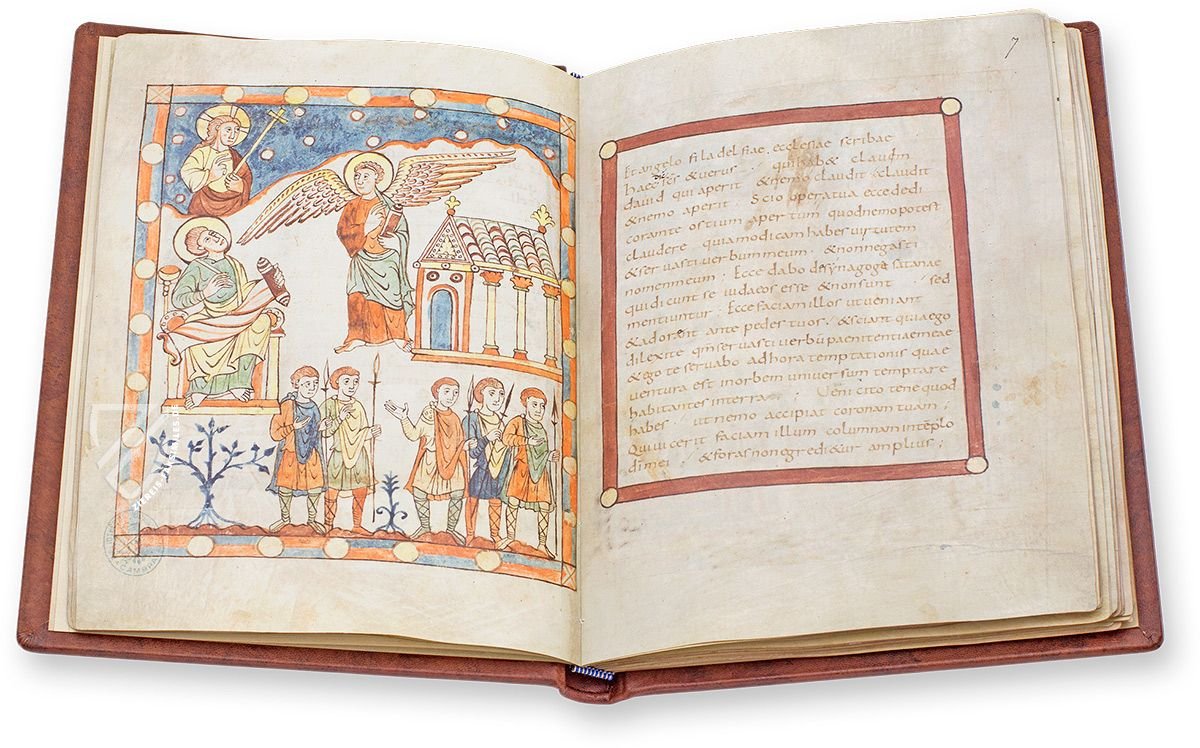 7
Et angelo filadelfiae, ecclesiae scribae
haec scs & verus qui hab& clauem
dauid qui aperit & nemo claudit & claudit
& nemo aperit Scio opera tua ecce dedi
corante ostium apertum quod nemo potest
claudere quia modicam habes uirtutem
& seruasti uerbum meum & non negasti
nomen meum Ecce dabo desynagoge satanae
qui dicunt se iudaeos esse & non sunt sed
mentiuntur Ecce faciam illos ut ueniant
& adorent ante pedes tuos & sciant quia ego
dilexi te qm seruasti uerbū paenitentiae meae
& ego te seruabo ad hora temptationis quae
uentura est in orbem uniuersum temptare
habitantes in terra Uenio cito tene quod
habes ut nemo accipiat coronam tuam
Qui uicerit faciam illum columnan in tēplo
di mei & foras non egredi&ur amplius